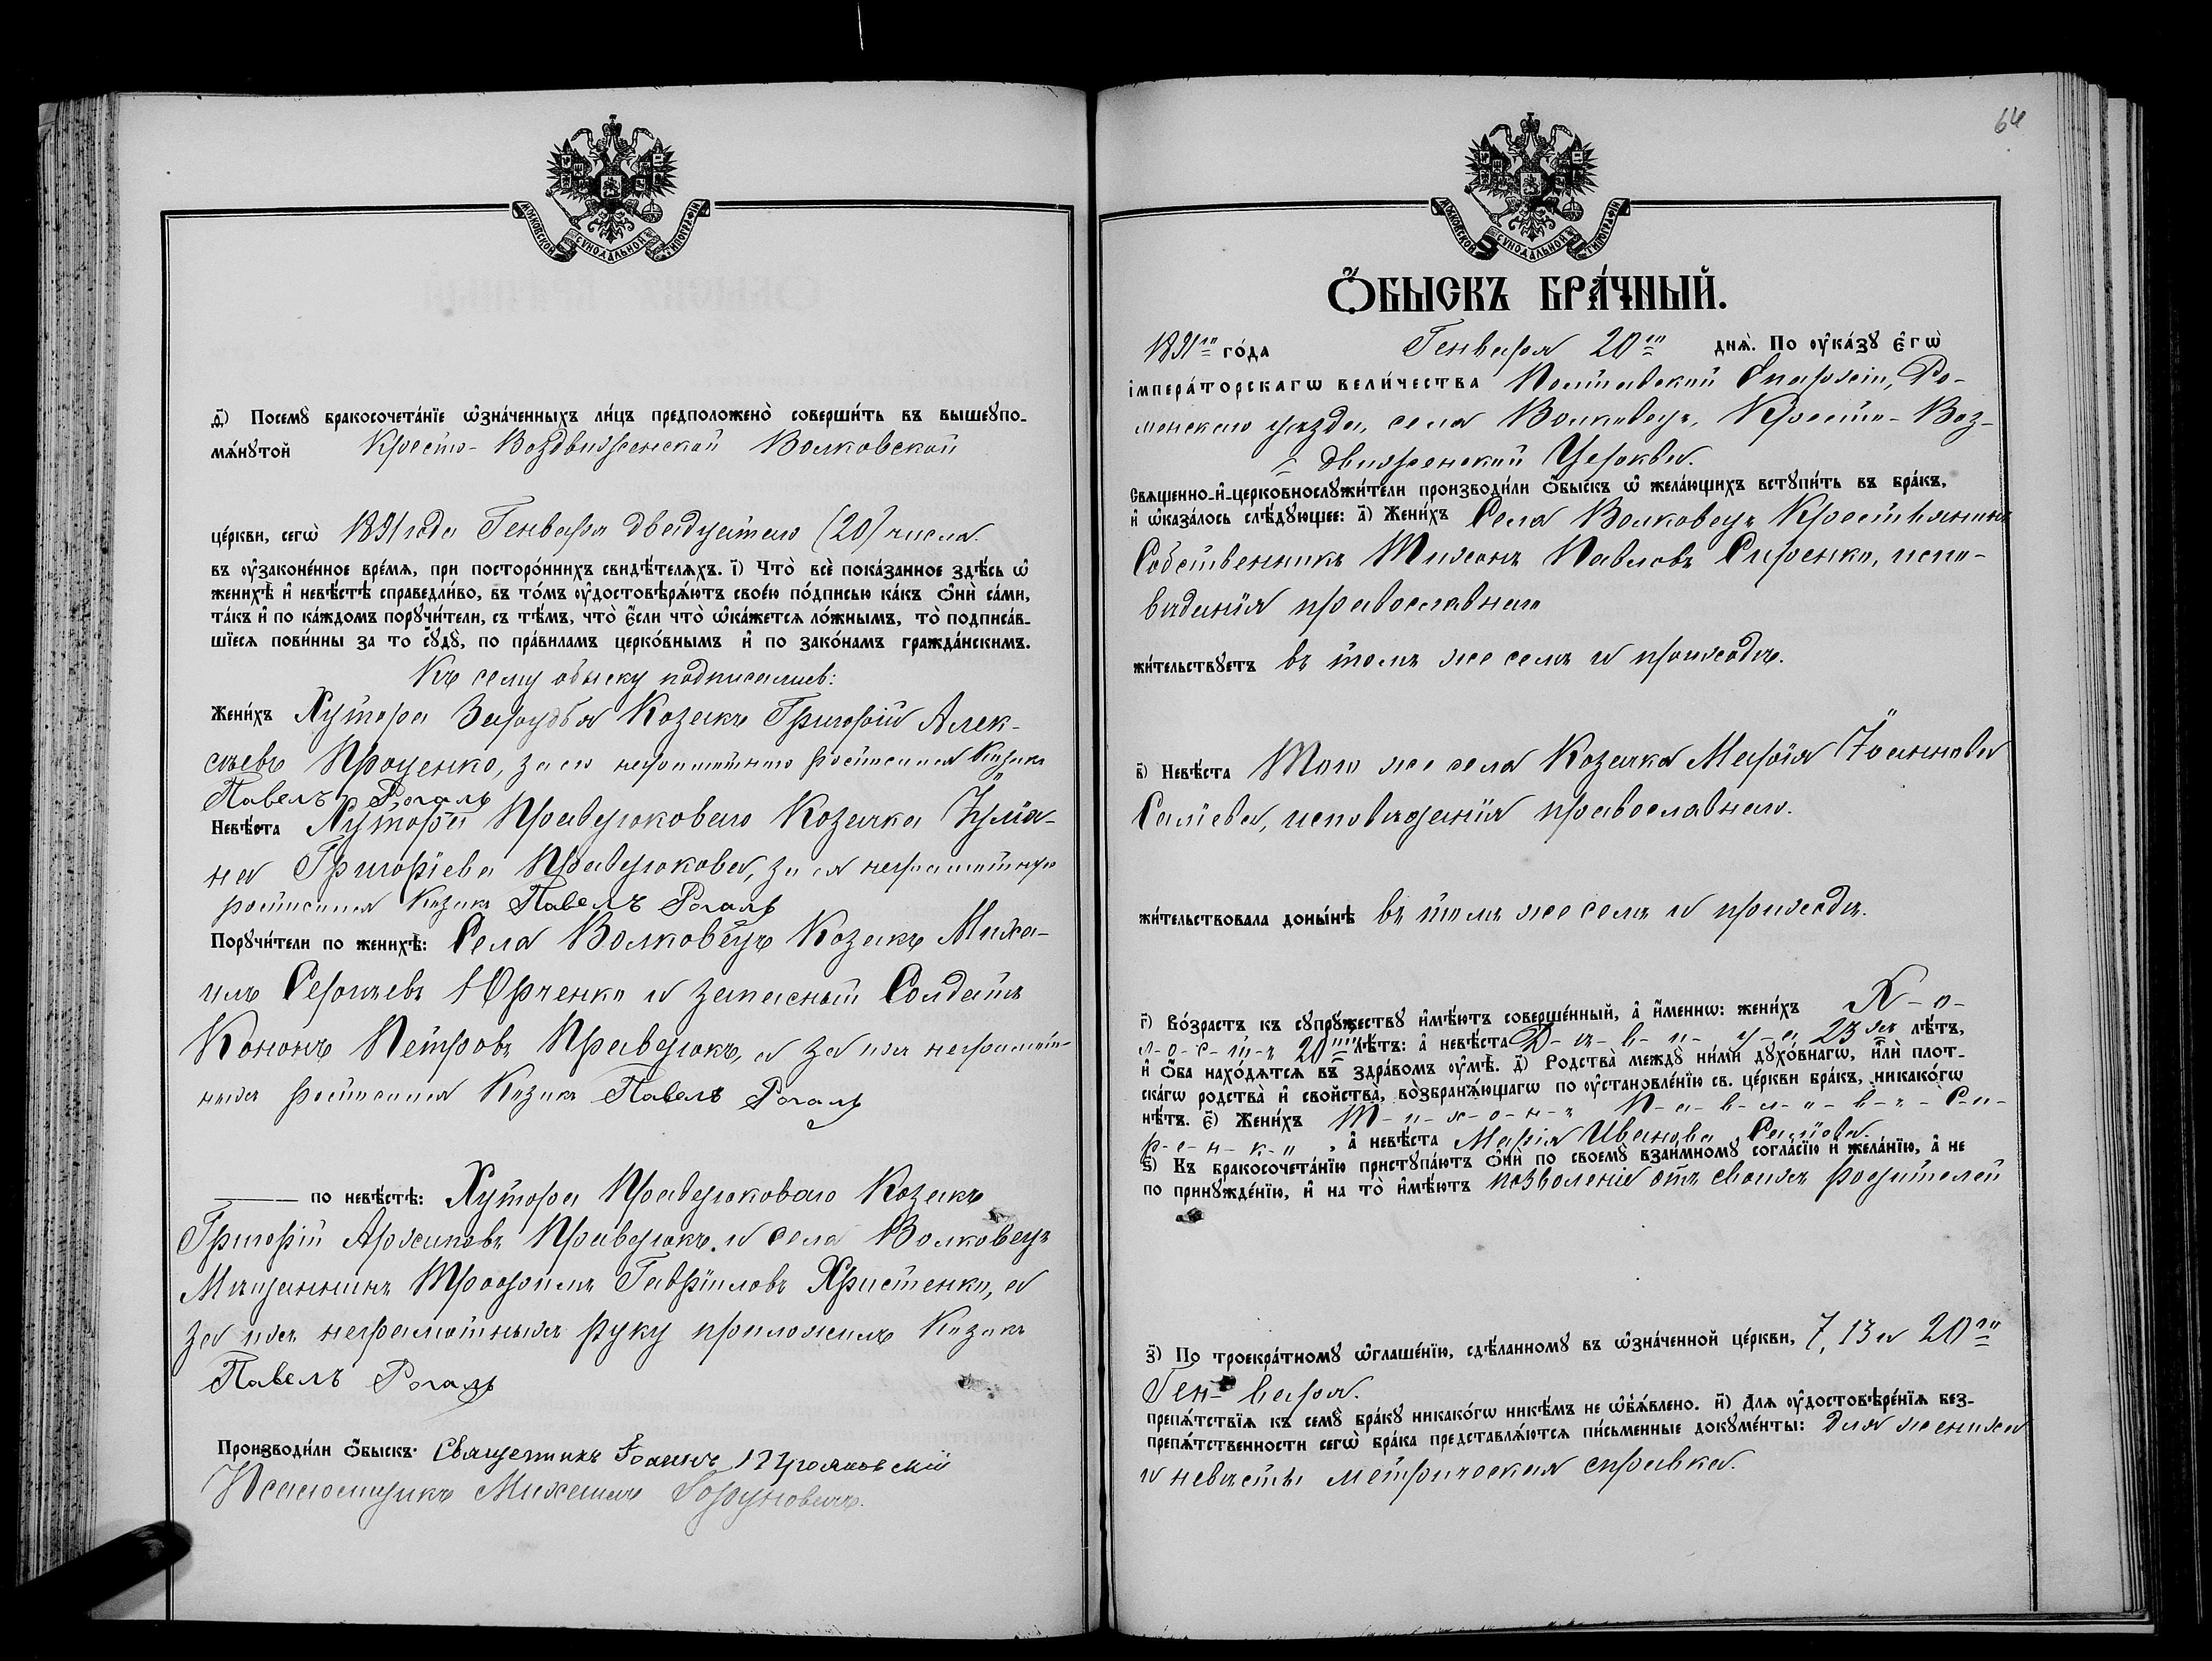 МОСКОВСКОЙ СѴНОДАЛЬНОЙ ТИПОГРАФІИ
д҃і) Посемꙋ̀ бракосочета́нїе ѡ҆зна́ченныхъ ли́цъ предположено̀ соверши́ть въ вышеꙋпо-
мѧ́нꙋтой Кресто-Воздвиженской Волковской
це́ркви, сегѡ̀ 1891 года Генваря двадцатаго (20) числа
въ ᲂу҆законе́нное вре́мѧ, при посторо́ннихъ свидѣ́телѧхъ. і҃) Что̀ всѐ пока́занное здѣ́сь ѡ҆
женихѣ̀ и҆ невѣ́стѣ справедли́во, въ то́мъ ᲂу҆достовѣрѧ́ютъ свое́ю по́дписью ка́къ ѻ҆нѝ са́ми,
та́къ и҆ по ка́ждомъ порꙋчи́тели, съ тѣ́мъ, что̀ є҆́сли что̀ ѡ҆ка́жетсѧ ло́жнымъ, то̀ подписа́в-
шїесѧ пови́нны за то сꙋдꙋ̀, по пра́виламъ церко́внымъ и҆ по зако́намъ гражда́нскимъ.
Къ сему обыску подписались:
Жени́хъ Хутора Зарудья Козакъ Григорій Алек-
сѣевъ Проценко, за его неграмотного росписался Козакъ
Павелъ Рогаль
Невѣ́ста Хутора Правдюковаго Козачка Іуліа-
на Григоріева Правдюкова, за ея неграмотную
росписался Козакъ Павелъ Рогаль
Порꙋчи́тели по женихѣ̀: Села Волковецъ Козакъ Миха-
илъ Сергіевъ Юрченко и запасный Солдатъ
Кононъ Петровъ Правдюкъ, а за ихъ неграмот-
ныхъ росписался Козакъ Павелъ Рогаль
по невѣ́стѣ: Хутора Правдюковаго Козакъ
Григорій Архиповъ Правдюкъ и села Волковецъ
Мѣщанинъ Трофимъ Гавріиловъ Христенко, а
за ихъ неграмотныхъ руку приложилъ Козакъ
Павелъ Рогаль
Производи́ли ѻ҆́быскъ: Священникъ Іоаннъ
Псаломщикъ Михаилъ
64
МОСКОВСКОЙ СѴНОДАЛЬНОЙ ТИПОГРАФІИ
Ѻ҆́БЫСКЪ БРА́ЧНЫЙ.
1891го го́да Генваря 20го днѧ̀. По ᲂу҆ка́зꙋ є҆гѡ̀
і҆мпера́торскагѡ вели́чества Полтавской Епархіи, Ро-
менскаго уѣзда, села Волковецъ, Кресто-Воз-
движенской Церкви.
Свѧще́нно-и҆-церковнослꙋжи́тели производи́ли ѻ҆́быскъ ѡ҆ жела́ющихъ встꙋпи́ть въ бра́къ,
и҆ ѡ҆каза́лось слѣ́дꙋющее: а҃) Жени́хъ Села Волковецъ Крестьянинъ
Собственникъ Тихонъ Павловъ Сиренко, испо-
вѣданія православнаго
жи́тельствꙋетъ въ томъ же селѣ и приходѣ.
в҃) Невѣ́ста Того же села Козачка Марія Іоаннова
Саліева, исповѣданія православнаго.
жи́тельствовала доны́нѣ въ томъ же селѣ и приходѣ.
г҃) Во́зрастъ къ сꙋпрꙋ́жествꙋ и҆мѣ́ютъ соверше́нный, а҆ и҆́меннѡ: жени́хъ Х-о-
л-о-с-т-ъ 20ти лѣ́тъ: а҆ невѣ́ста Д-ѣ-в-и-ц-а 23хъ лѣ́тъ,
и҆ ѻ҆́ба нахо́дѧтсѧ въ здра́вомъ ᲂу҆мѣ̀. д҃) Родства̀ междꙋ̀ ни́ми дꙋхо́внагѡ, и҆лѝ плот-
ска́гѡ родства̀ и҆ свойства̀, возбранѧ́ющагѡ по ᲂу҆становле́нїю св. це́ркви бра́къ, никако́гѡ
нѣ́тъ. є҃) Жени́хъ Т-и-х-о-н-ъ П-а-в-л-о-в-ъ-С-и-
р-е-н-к-о, а҆ невѣ́ста Марія Иванова Саліева.
ѕ҃) Къ бракосочета́нїю пристꙋпа́ютъ ѻ҆нѝ по своемꙋ̀ взаи́мномꙋ согла́сїю и҆ жела́нїю, а҆ не
по принꙋжде́нїю, и҆ на то̀ и҆мѣ́ютъ позволеніе отъ своихъ родителей
з҃) По троекра́тномꙋ ѡ҆глаше́нїю, сдѣ́ланномꙋ въ ѡ҆зна́ченной це́ркви, 7, 13 и 20го
Ген-варя.
препѧ́тствїѧ къ семꙋ̀ бра́кꙋ никако́гѡ никѣ́мъ не ѡ҆б̾ѧ́влено. и҃) Длѧ ᲂу҆достовѣре́нїѧ без-
препѧ́тственности сегѡ̀ бра́ка представлѧ́ютсѧ пи́сьменные докꙋме́нты: для жениха
и невѣсты метрическая справка.